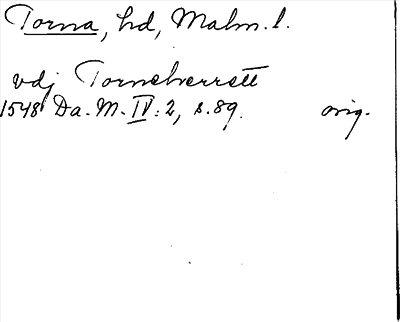 Torna, hd, Malm. l.
vdj Torneherrett
1548 Da. M. IV: 2, s. 89. orig.